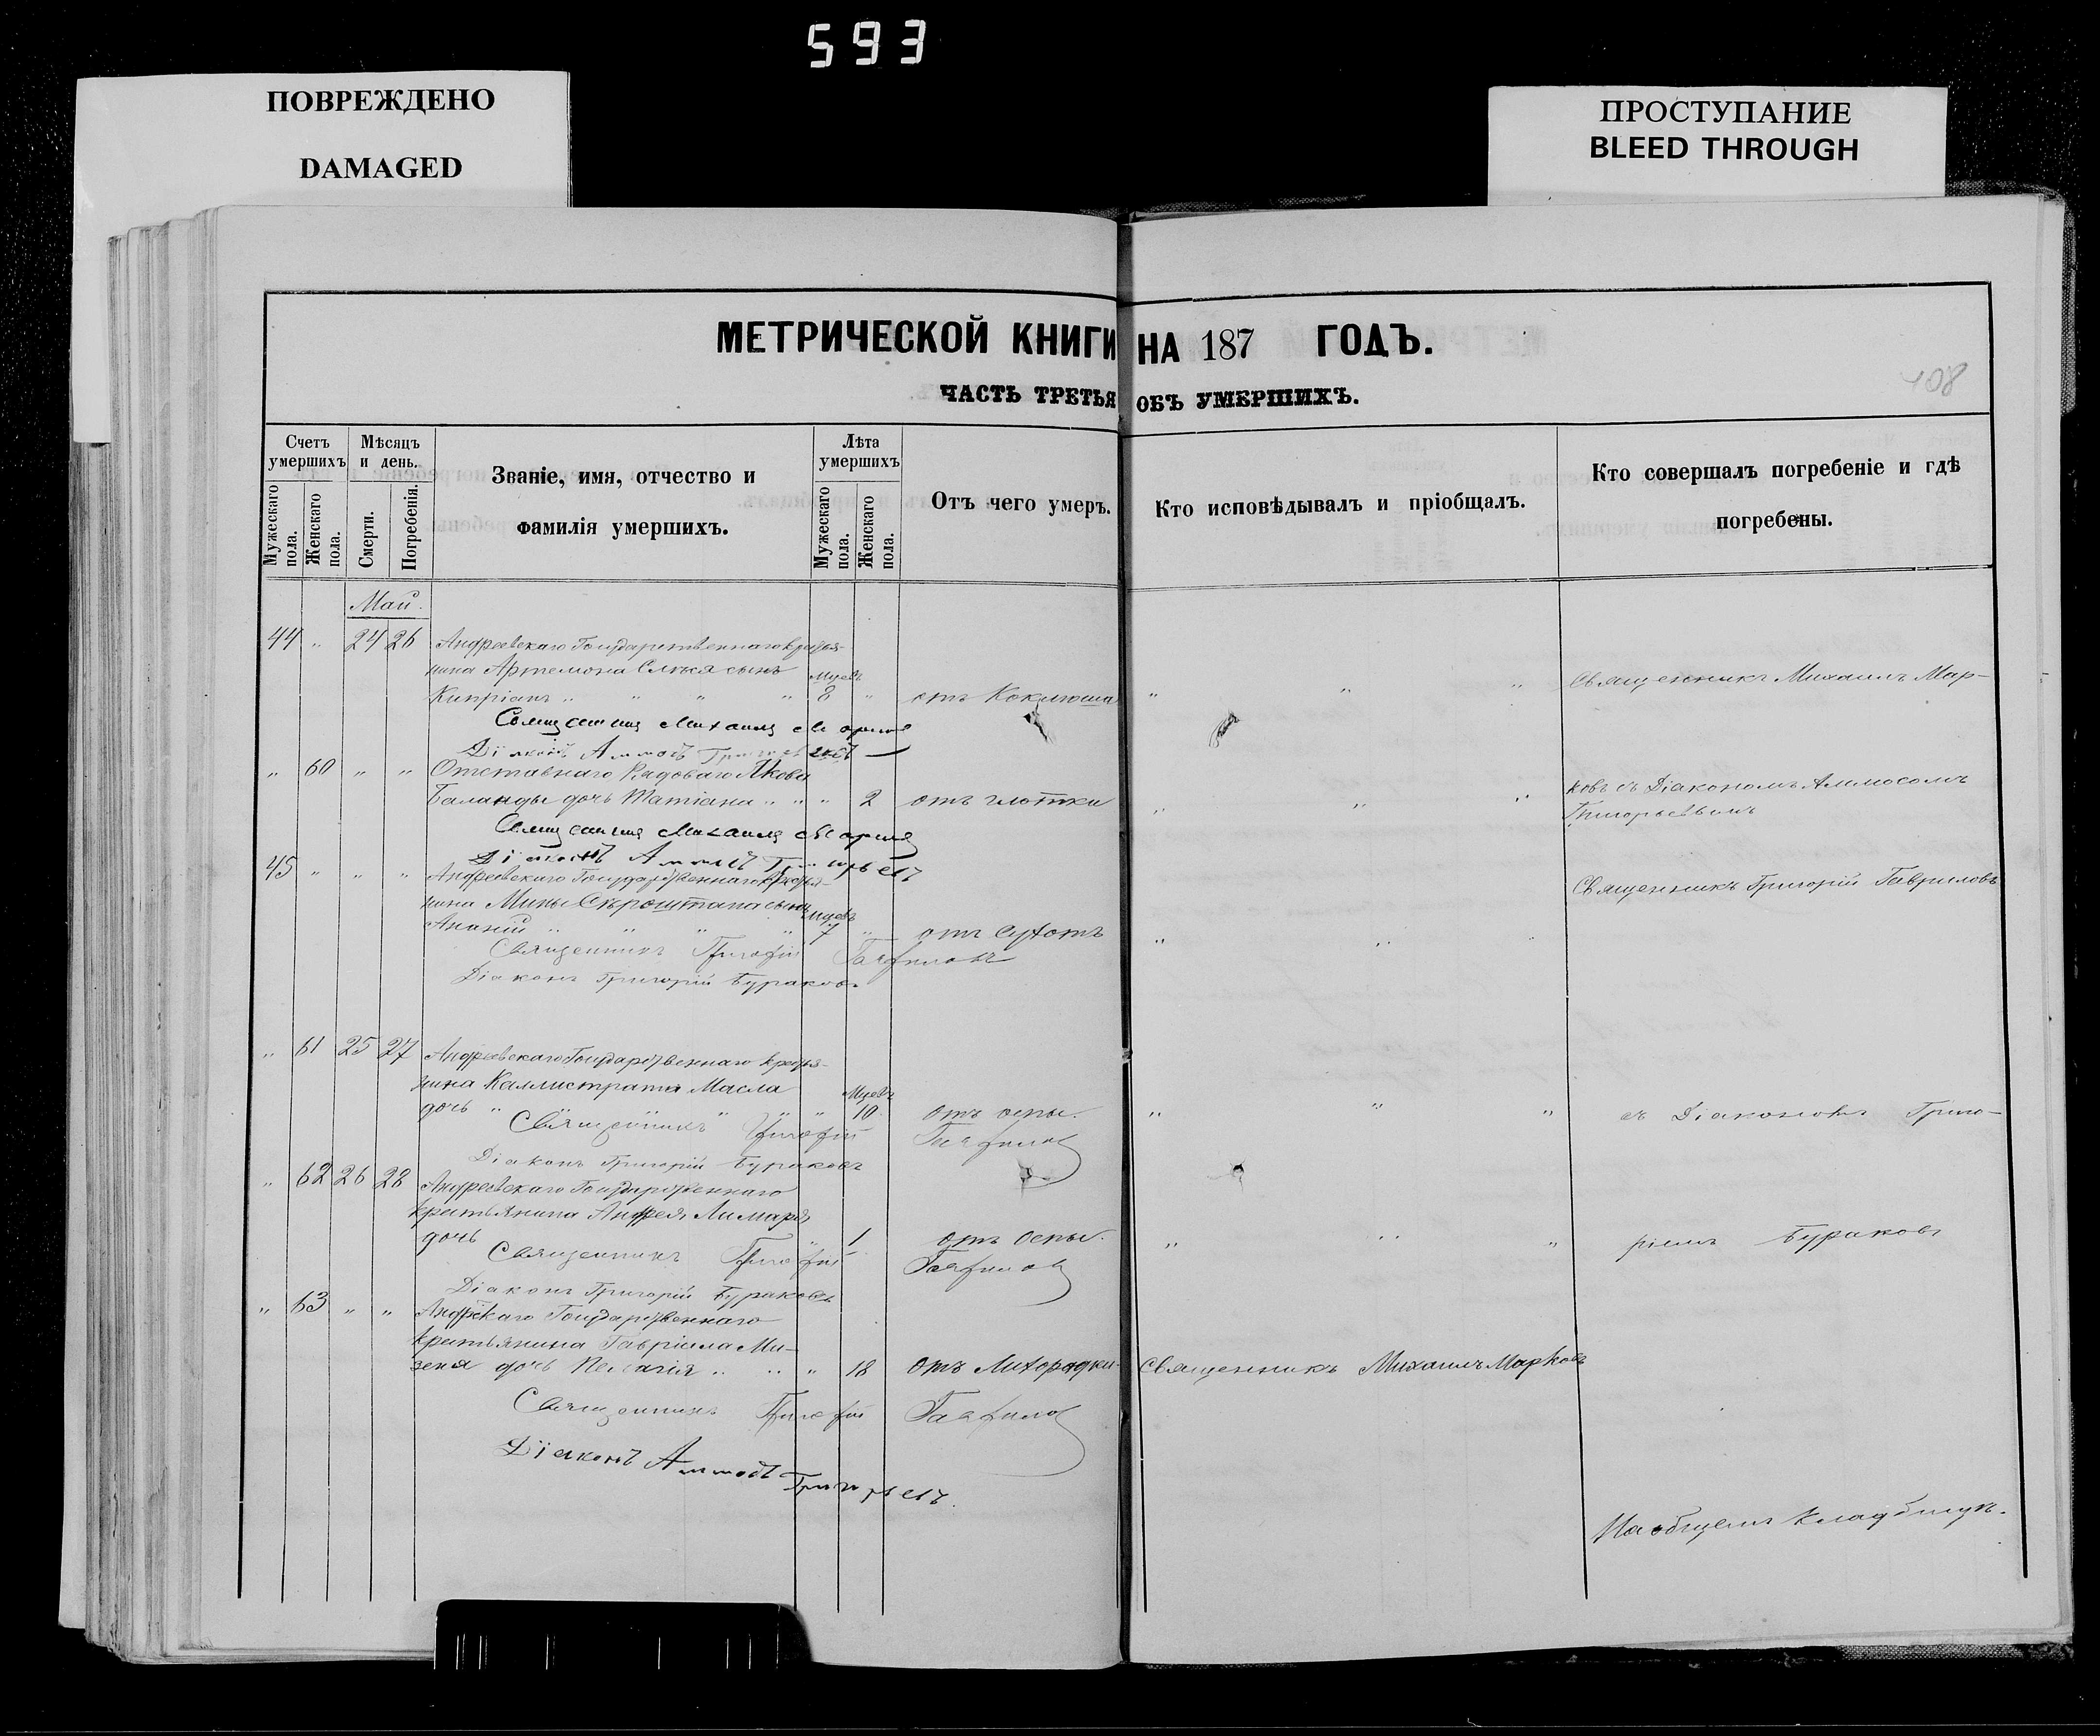 593
ПОВРЕЖДЕНО
DAMAGED
ПРОСТУПАНИЕ
BLEED THROUGH
МЕТРИЧЕСКОЙ КНИГИ НА 187 ГОДЪ.
ЧАСТЬ ТРЕТЬЯ ОБЪ УМЕРШИХЪ.
108
Счетъ умершихъ
Мужескаго пола.
Женскаго пола.
Мѣсяцъ и день.
Смерти.
Погребенія.
Званіе, имя, отчество и
фамилія умершихъ.
Лѣта умершихъ
Мужескаго пола.
Женскаго пола.
Отъ чего умеръ.
Кто исповѣдывалъ и пріобщалъ.
Кто совершалъ погребеніе и гдѣ
погребены.
Май.
44 " 24 26 Андреевскаго Государственнаго крестья-
нина Артемона сынъ мцевъ Священникъ Михаилъ Мар-
Кипріанъ " " " " 8 " отъ Коклюша " " "
Михаилъ
Діаконъ Аммосъ
" 60 " " Отставнаго Рядоваго Якова
Баланды дочь Татіана " " " 2 отъ глотки " " " ковъ съ Діакономъ Аммосомъ
Григорьевымъ
Михаилъ
Діаконъ Аммосъ Григорьевъ
45 " " " Андреевскаго Государственнаго крестья-
нина Мины сынъ мцевъ Священникъ Григорій Гавриловъ
Ананій " " " " 7 " отъ Сухотъ " " "
Священникъ Григорій Гавриловъ
Діаконъ Григорій Бураковъ
" 61 25 27 Андреевскаго Государственнаго крестья-
нина Каллистрата Масла Мцевъ
дочь " " " " " 10 отъ оспы. " " " съ Діакономъ Григо-
Священникъ Григорій Гавриловъ
Діаконъ Григорій Бураковъ
" 62 26 28 Андреевскаго Государственнаго
крестьянина Андрея Лимаря
дочь " 1 отъ оспы. " " " ріемъ Бураковъ
Священникъ Григорій Гавриловъ
Діаконъ Григорій Бураковъ
" 63 " " Государственнаго
крестьянина Гавріила Ми-
зеня дочь Пелагія " " " 18 отъ Лихорадки Священникъ Михаилъ Марковъ
Священникъ Григорій Гавриловъ
Діаконъ Аммосъ Григорьевъ.
На общемъ кладбищѣ.